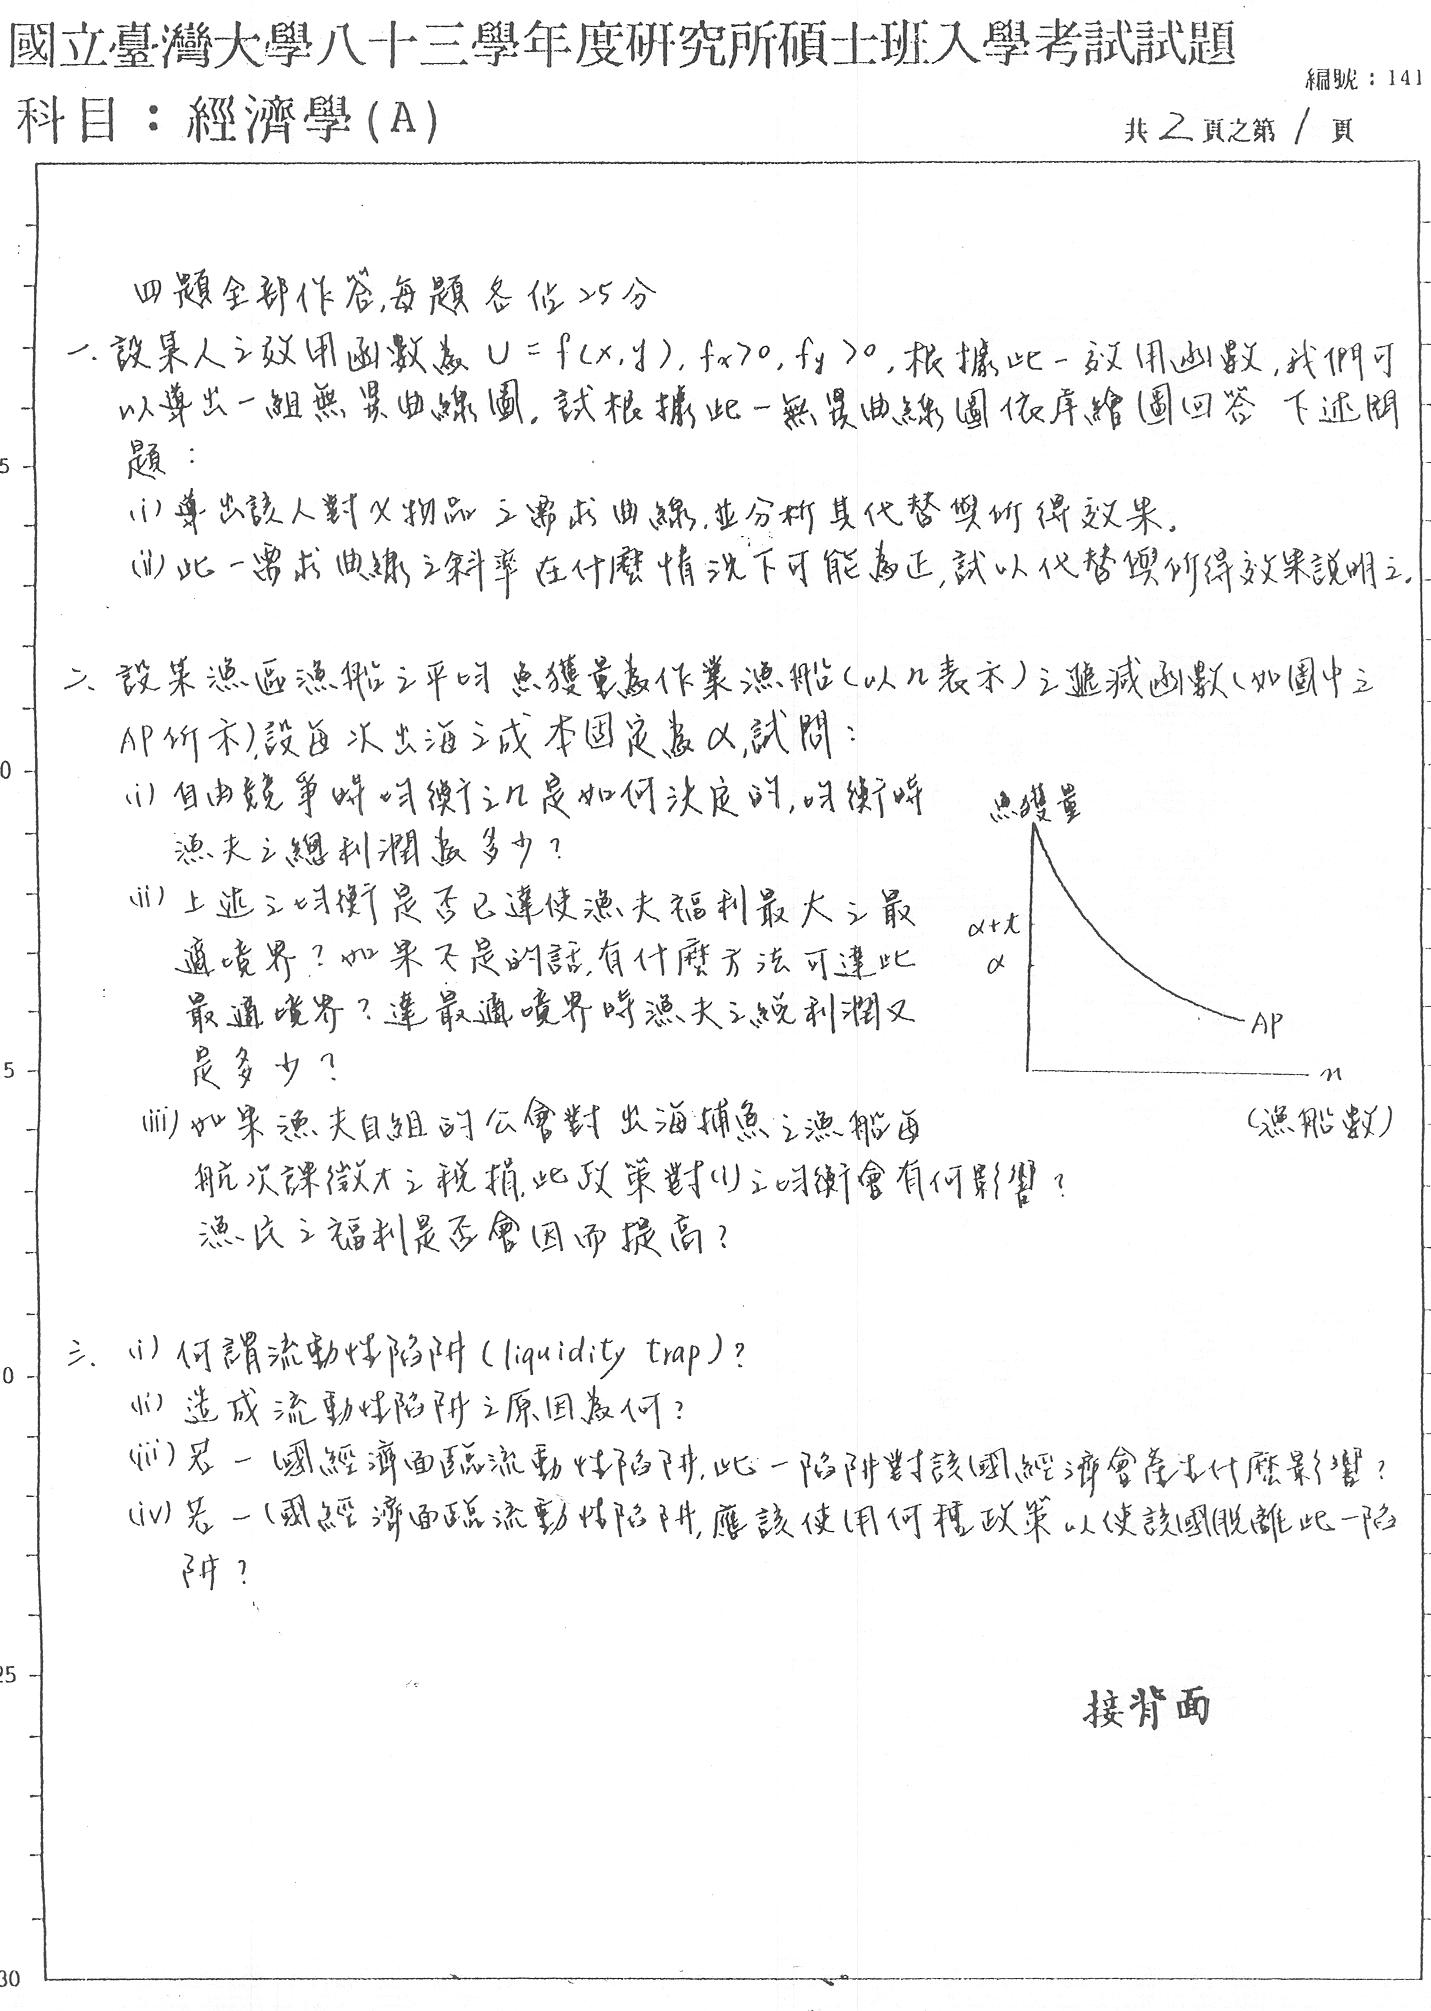 國立臺灣大學八十三學年度研究所碩士班入學考試試題
編號：141
科目：經濟學(A)
共2頁之第1頁
四題全部作答，每題各佔25分
一、設某人之效用函數為 U = f(x,y), fx>0, fy>0，根據此一效用函數，我們可
以導出一組無異曲線圖。試根據此一無異曲線圖依序繪圖回答下述問
題：
(i) 導出該人對X物品之需求曲線，並分析其代替與所得效果。
(ii) 此一需求曲線之斜率在什麼情況下可能為正，試以代替與所得效果說明之。
二、設某漁區漁船之平均魚獲量為作業漁船(以n表示)之遞減函數(如圖中之
AP所示)，設每次出海之成本固定為α，試問：
(i) 自由競爭時均衡之n是如何決定的，均衡時
漁夫之總利潤為多少？
(ii) 上述之均衡是否已達使漁夫福利最大之最
適境界？如果不是的話，有什麼方法可達此
最適境界？達最適境界時漁夫之總利潤又
是多少？
(iii) 如果漁夫自組的公會對出海捕魚之漁船每
航次課徵t之稅捐，此政策對(i)之均衡會有何影響？
漁民之福利是否會因而提高？
魚獲量
α+t
α
AP
n
(漁船數)
三、(i) 何謂流動性陷阱(liquidity trap)？
(ii) 造成流動性陷阱之原因為何？
(iii) 若一國經濟面臨流動性陷阱，此一陷阱對該國經濟會產生什麼影響？
(iv) 若一國經濟面臨流動性陷阱，應該使用何種政策以使該國脫離此一陷
阱？
接背面
5
0
5
0
25
30